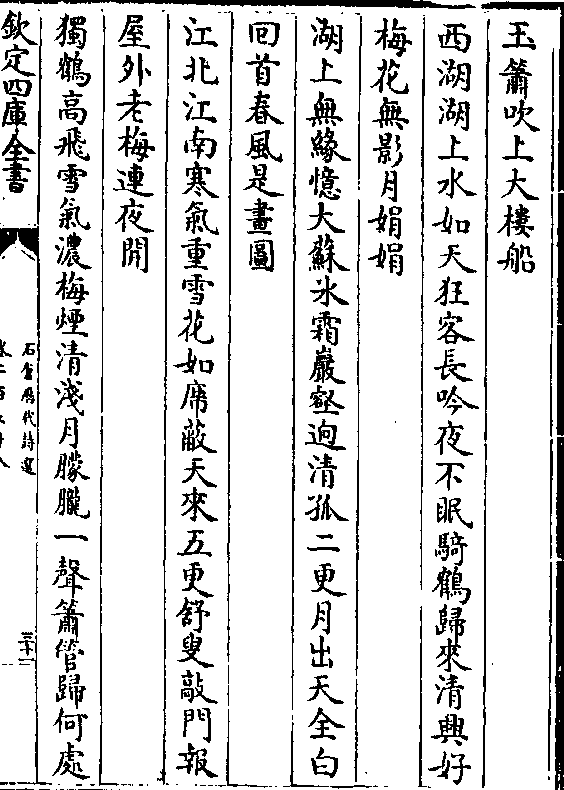 玉簫吹上大樓船
西湖湖上水如天狂客長吟夜不眠騎鶴歸來清興好
梅花無影月娟娟
湖上無緣憶大蘇氷霜巖壑逈清孤二更月出天全白
回首春風是畫圖
江北江南寒氣重雪花如席蔽天來五更舒叟敲門報
屋外老梅連夜開
獨鶴高飛雪氣濃梅煙清淺月朦朧一聲簫管歸何處
欽定四庫全書
石倉歴代詩選